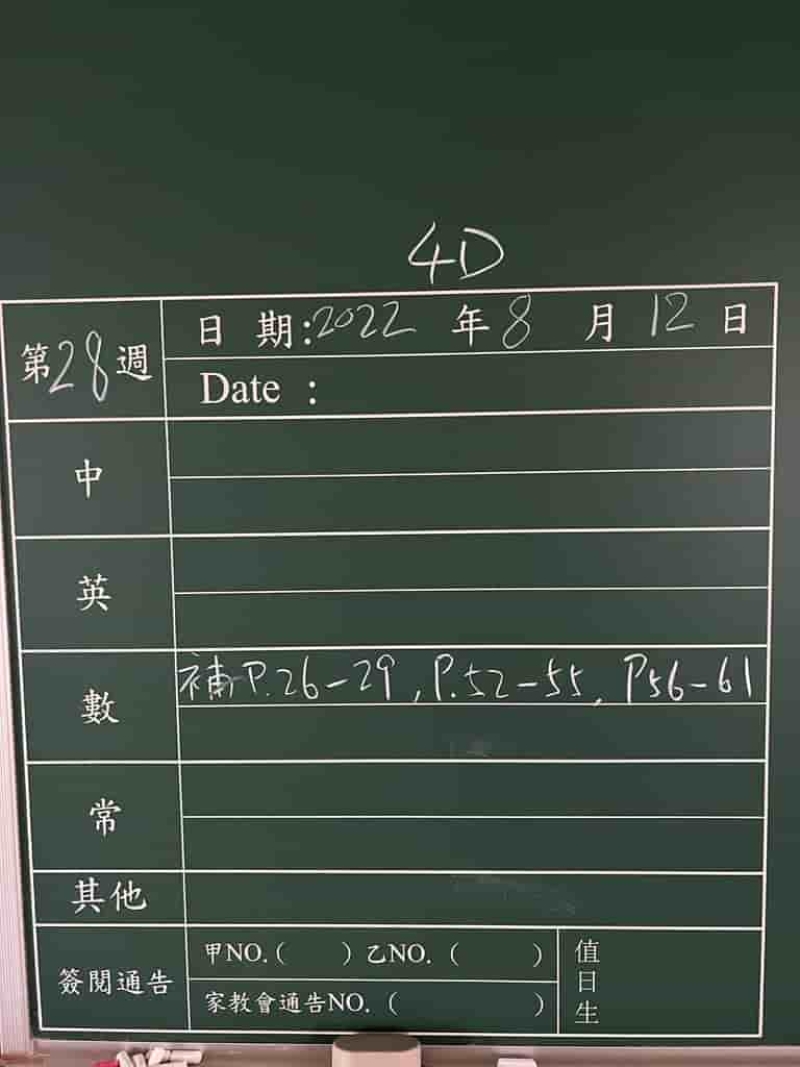 4D
第28週
日 期:2022 年 8 月 12 日
Date :
中
英
數
補P.26-29, P.52-55, P56-61
常
其他
簽閱通告
甲NO.( ) 乙NO. ( )
家教會通告NO. ( )
值日生